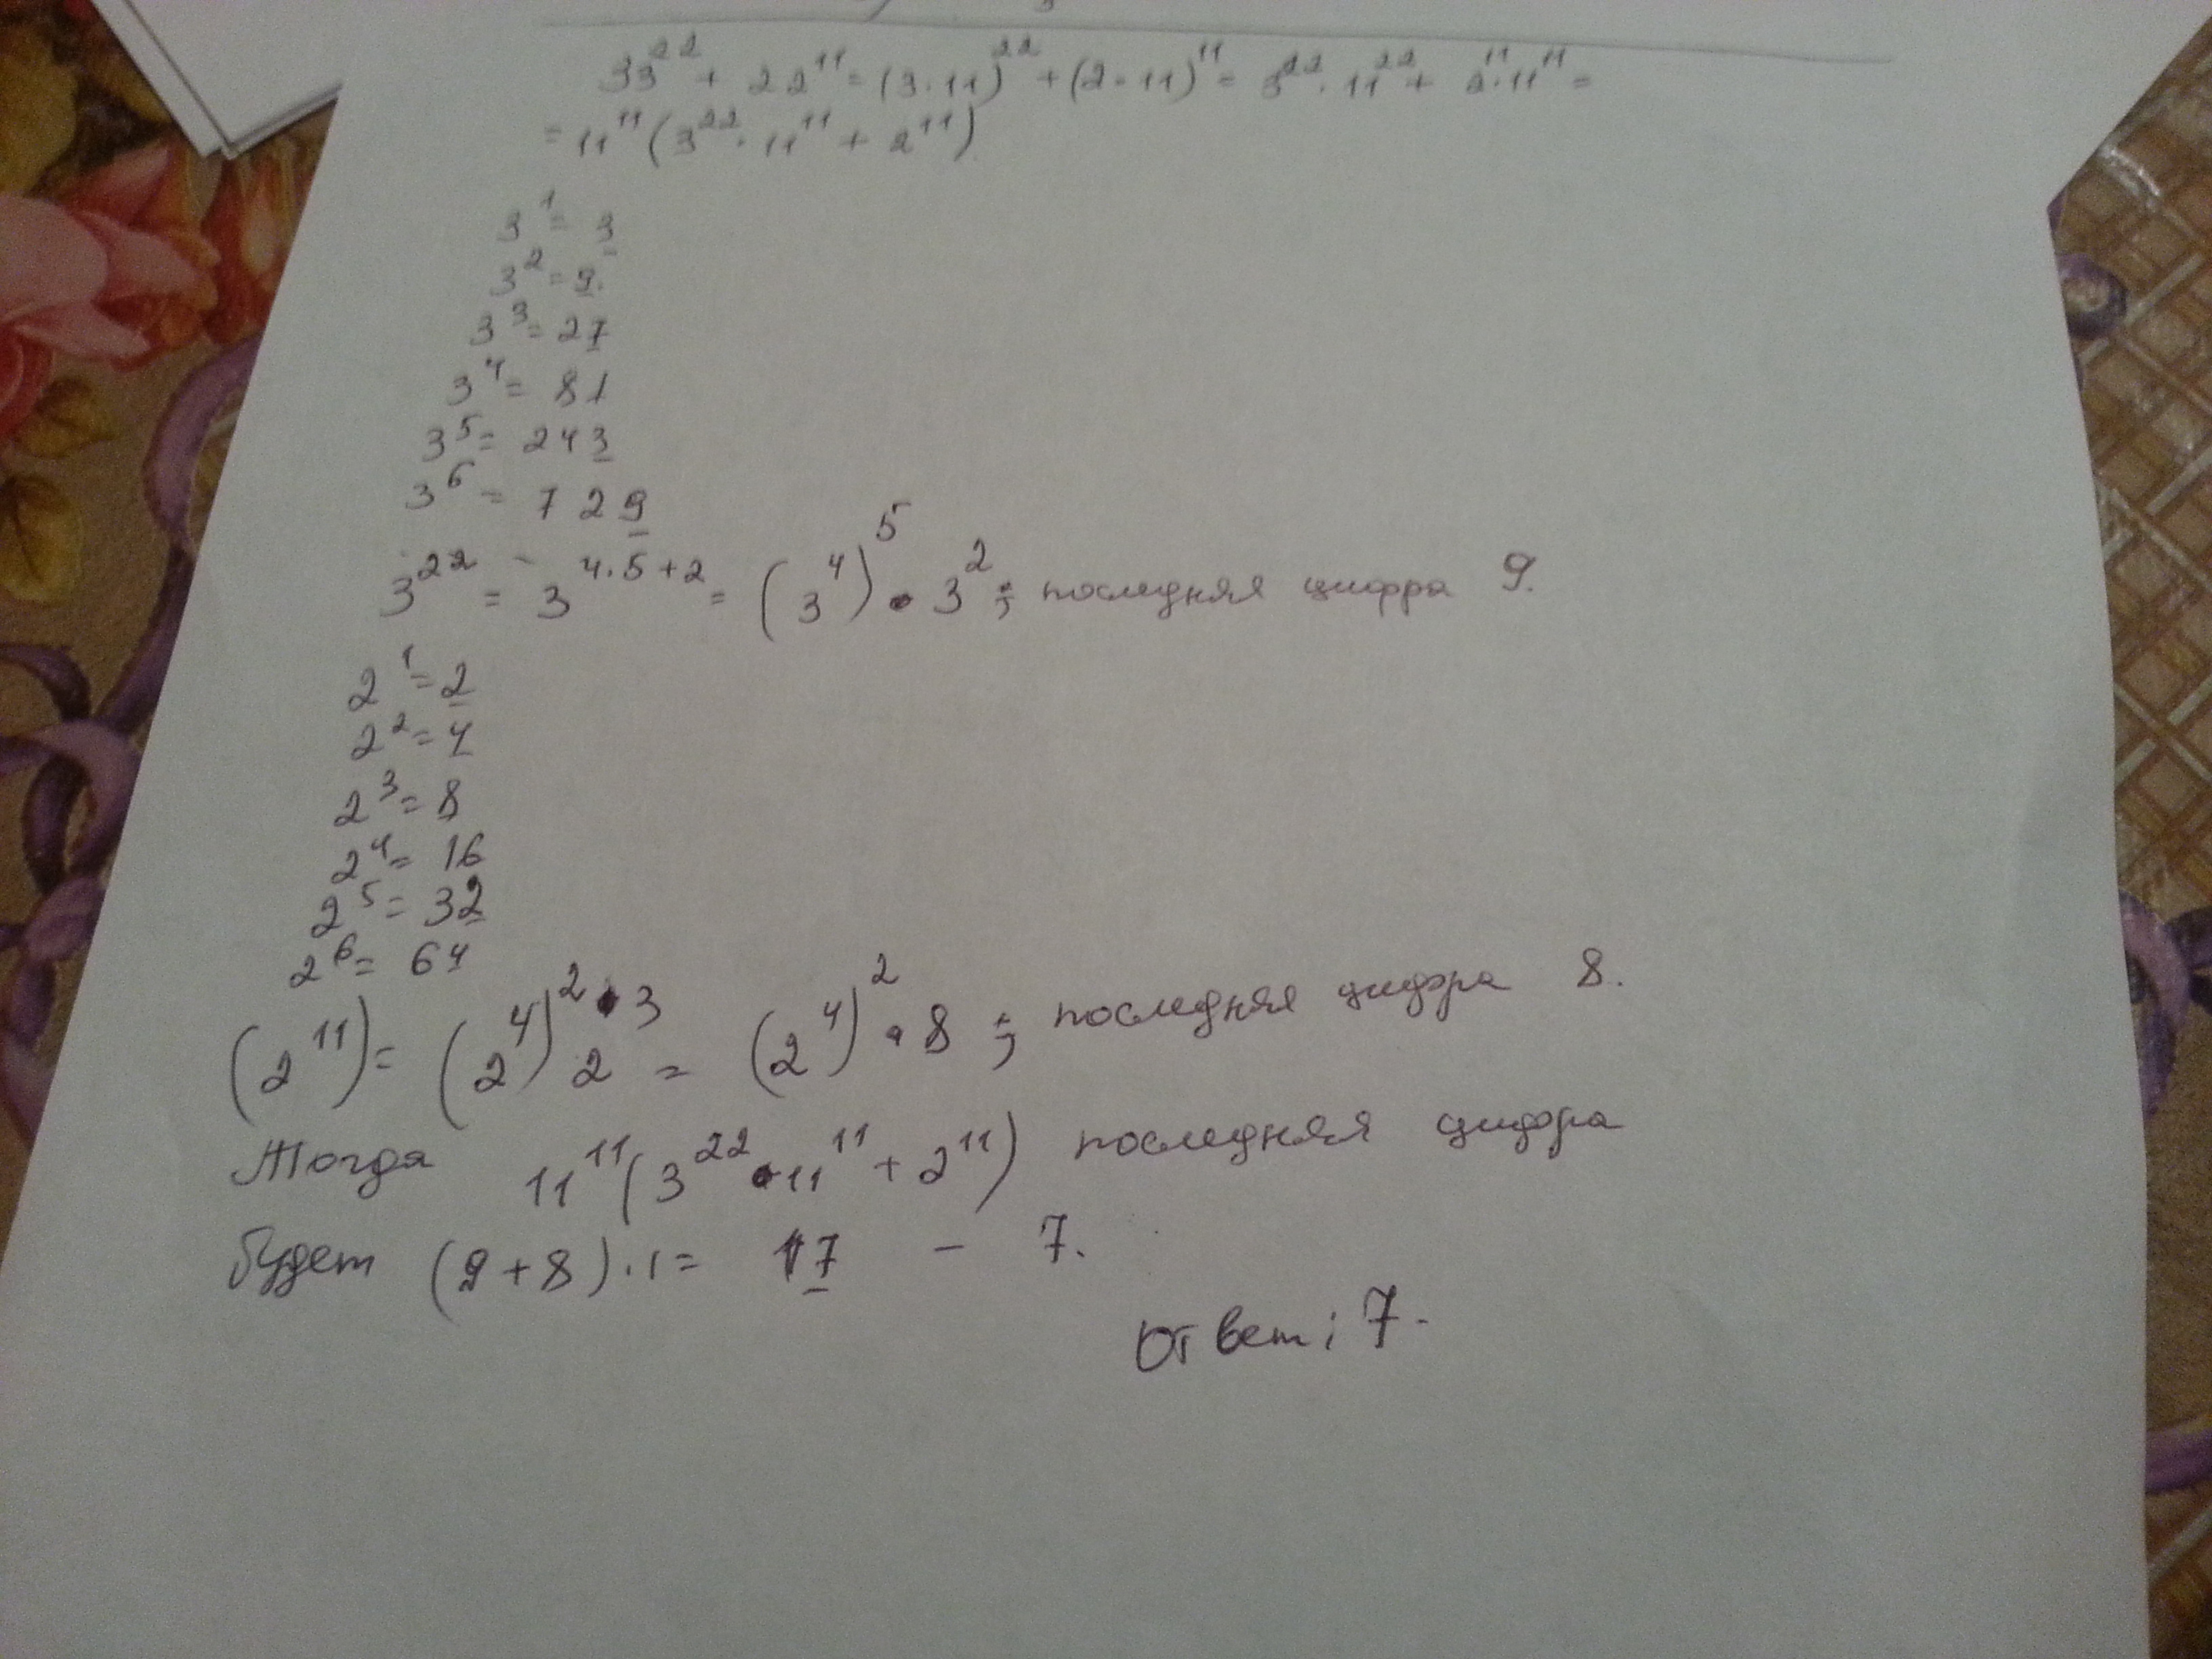 33²² + 22¹¹ = (3·11)²² + (2·11)¹¹ = 3²²·11²² + 2¹¹·11¹¹ =
= 11¹¹(3²²·11¹¹ + 2¹¹)
3¹ = 3
3² = 9
3³ = 27
3⁴ = 81
3⁵ = 243
3⁶ = 729
3²² = 3⁴·⁵⁺² = (3⁴)⁵ · 3²; последняя цифра 9.
2¹ = 2
2² = 4
2³ = 8
2⁴ = 16
2⁵ = 32
2⁶ = 64
(2¹¹) = (2⁴)² · 2³ = (2⁴)² · 8; последняя цифра 8.
Тогда 11¹¹(3²²·11¹¹ + 2¹¹) последняя цифра
будет (9+8)·1 = 17 – 7.
Ответ: 7.